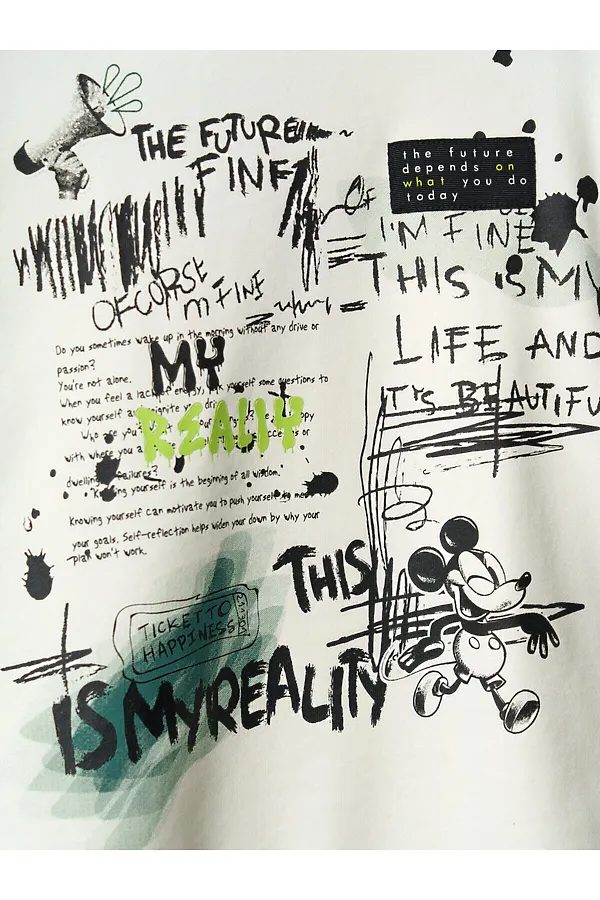 THE FUTURE
FINE
the future
depends on
what you do
today
OF
I'M FINE
THIS IS MY
LIFE AND
IT'S BEAUTIFU
OFCORSE
M FINE
Do you sometimes wake up in the morning without any drive or
passion?
You're not alone.
MY
When you feel a lack of energy, yourself some questions to
know yourself
REALIY
Who are you?
with where you a
dwelling failures?
yourself is the beginning of all wisdom."
Knowing yourself can motivate you to push yourself to me
your goals. Self-reflection helps widen your down by why your
plan won't work.
THIS
TICKET TO
HAPPINESS
IS MY REALITY